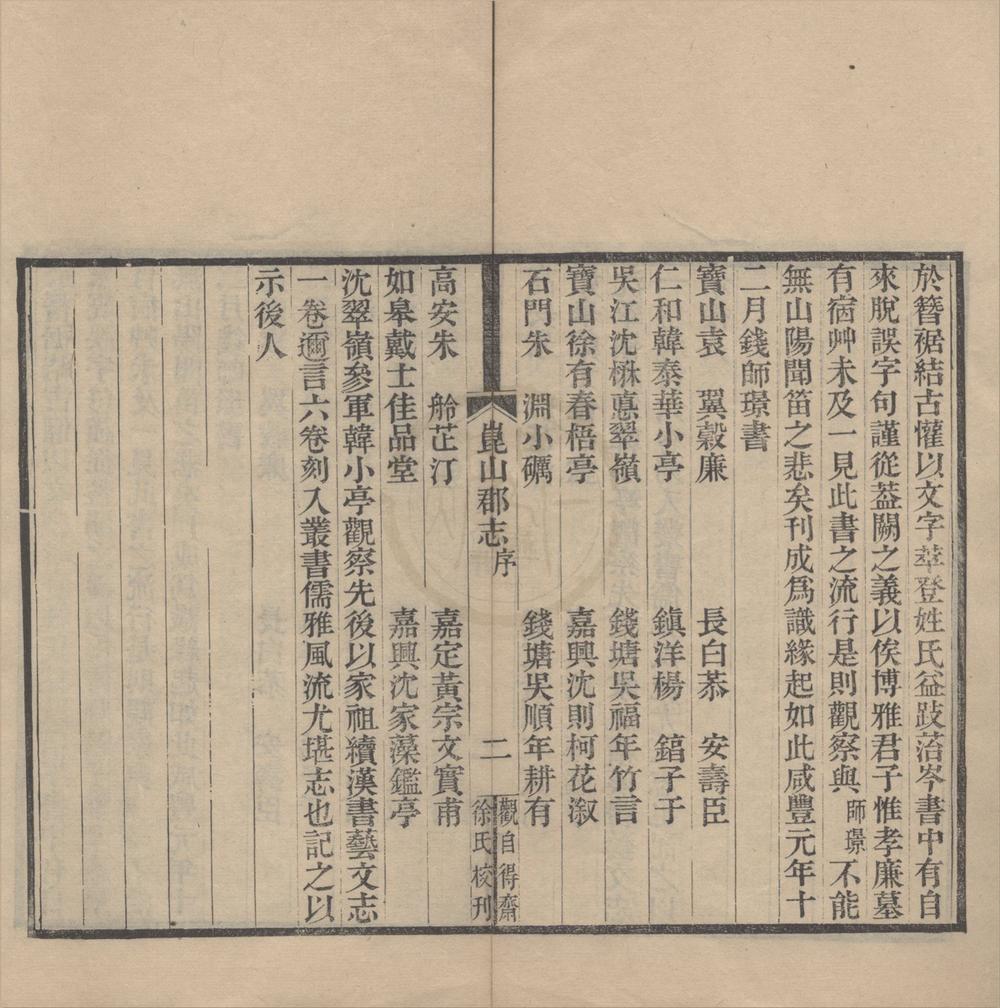 於簪裾結古懽以文字萃登姓氏益跂菭岑書中有自
來脫誤字句謹從蓋闕之義以俟博雅君子惟孝廉墓
有宿艸未及一見此書之流行是則觀察與師璟不能
無山陽聞笛之悲矣刊成爲識緣起如此咸豐元年十
二月錢師璟書
寶山袁 翼穀廉 長白菾 安壽臣
仁和韓泰華小亭 鎮洋楊 錧子于
吳江沈楙悳翠嶺 錢塘吳福年竹言
寶山徐有春梧亭 嘉興沈則柯花溆
石門朱 淵小礪 錢塘吳順年耕有
崑山郡志 序 二 觀自得齋
徐氏校刊
高安朱 舲芷汀 嘉定黃宗文實甫
如皋戴士佳品堂 嘉興沈家藻鑑亭
沈翠嶺參軍韓小亭觀察先後以家祖續漢書藝文志
一卷邇言六卷刻入叢書儒雅風流尤堪志也記之以
示後人